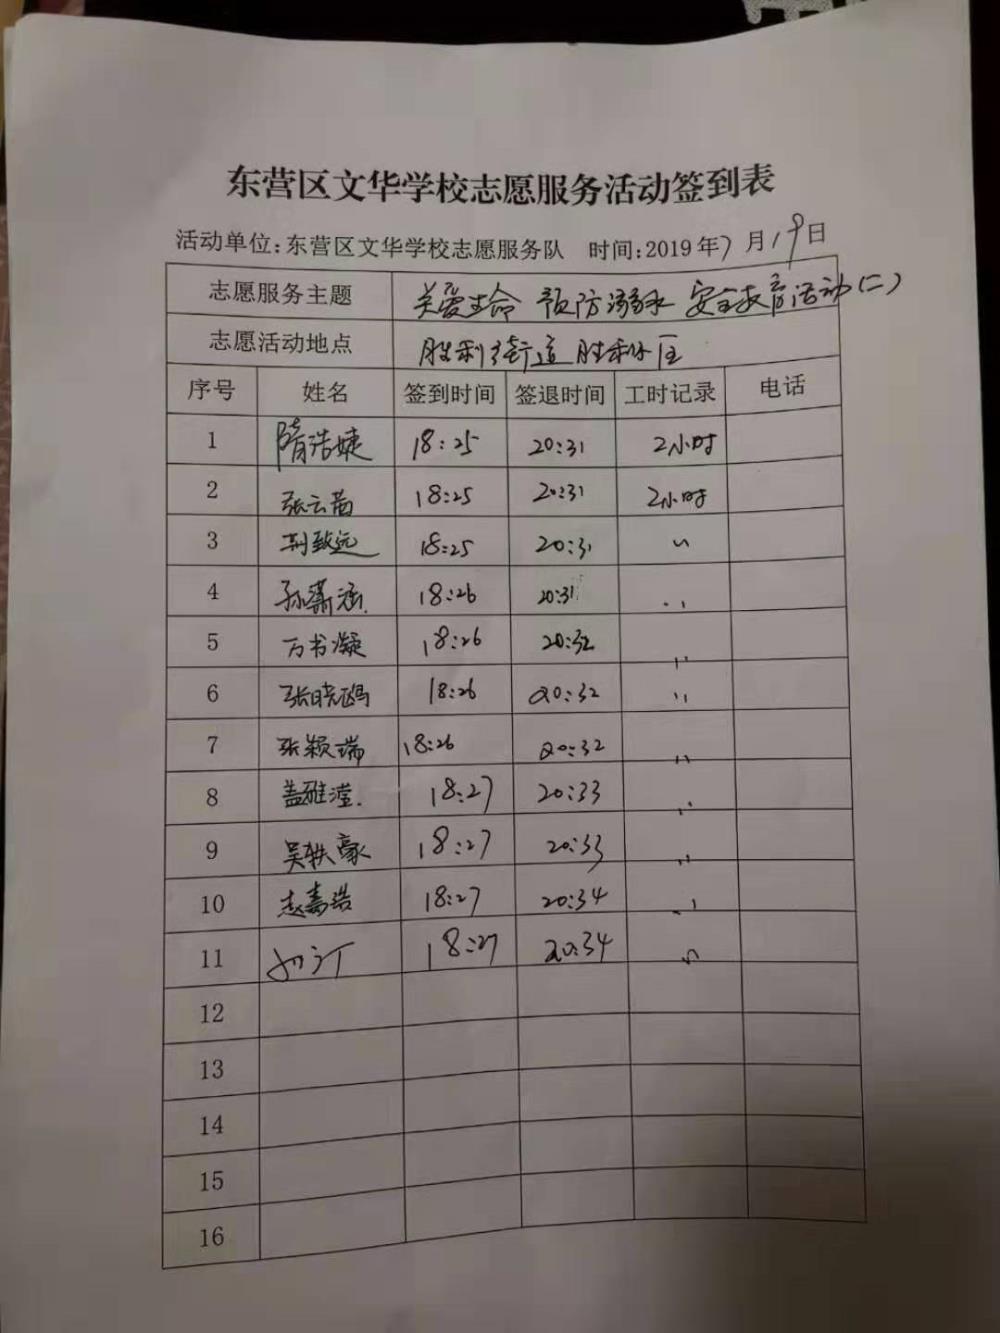 东营区文华学校志愿服务活动签到表
活动单位:东营区文华学校志愿服务队 时间:2019年7月19日
志愿服务主题 关爱生命 预防溺水 安全教育活动(二)
志愿活动地点 胜利街道胜利社区
序号 姓名 签到时间 签退时间 工时记录 电话
1 隋浩婕 18:25 20:31 2小时
2 张云茜 18:25 20:31 2小时
3 荆致远 18:25 20:31 〃
4 孙萧涵 18:26 20:31 〃
5 万书凝 18:26 20:32 〃
6 张晓鸥 18:26 20:32 〃
7 张颖瑞 18:26 20:32 〃
8 盖雅滢 18:27 20:33 〃
9 吴轶豪 18:27 20:33 〃
10 赵嘉浩 18:27 20:34 〃
11 18:27 20:34 〃
12
13
14
15
16